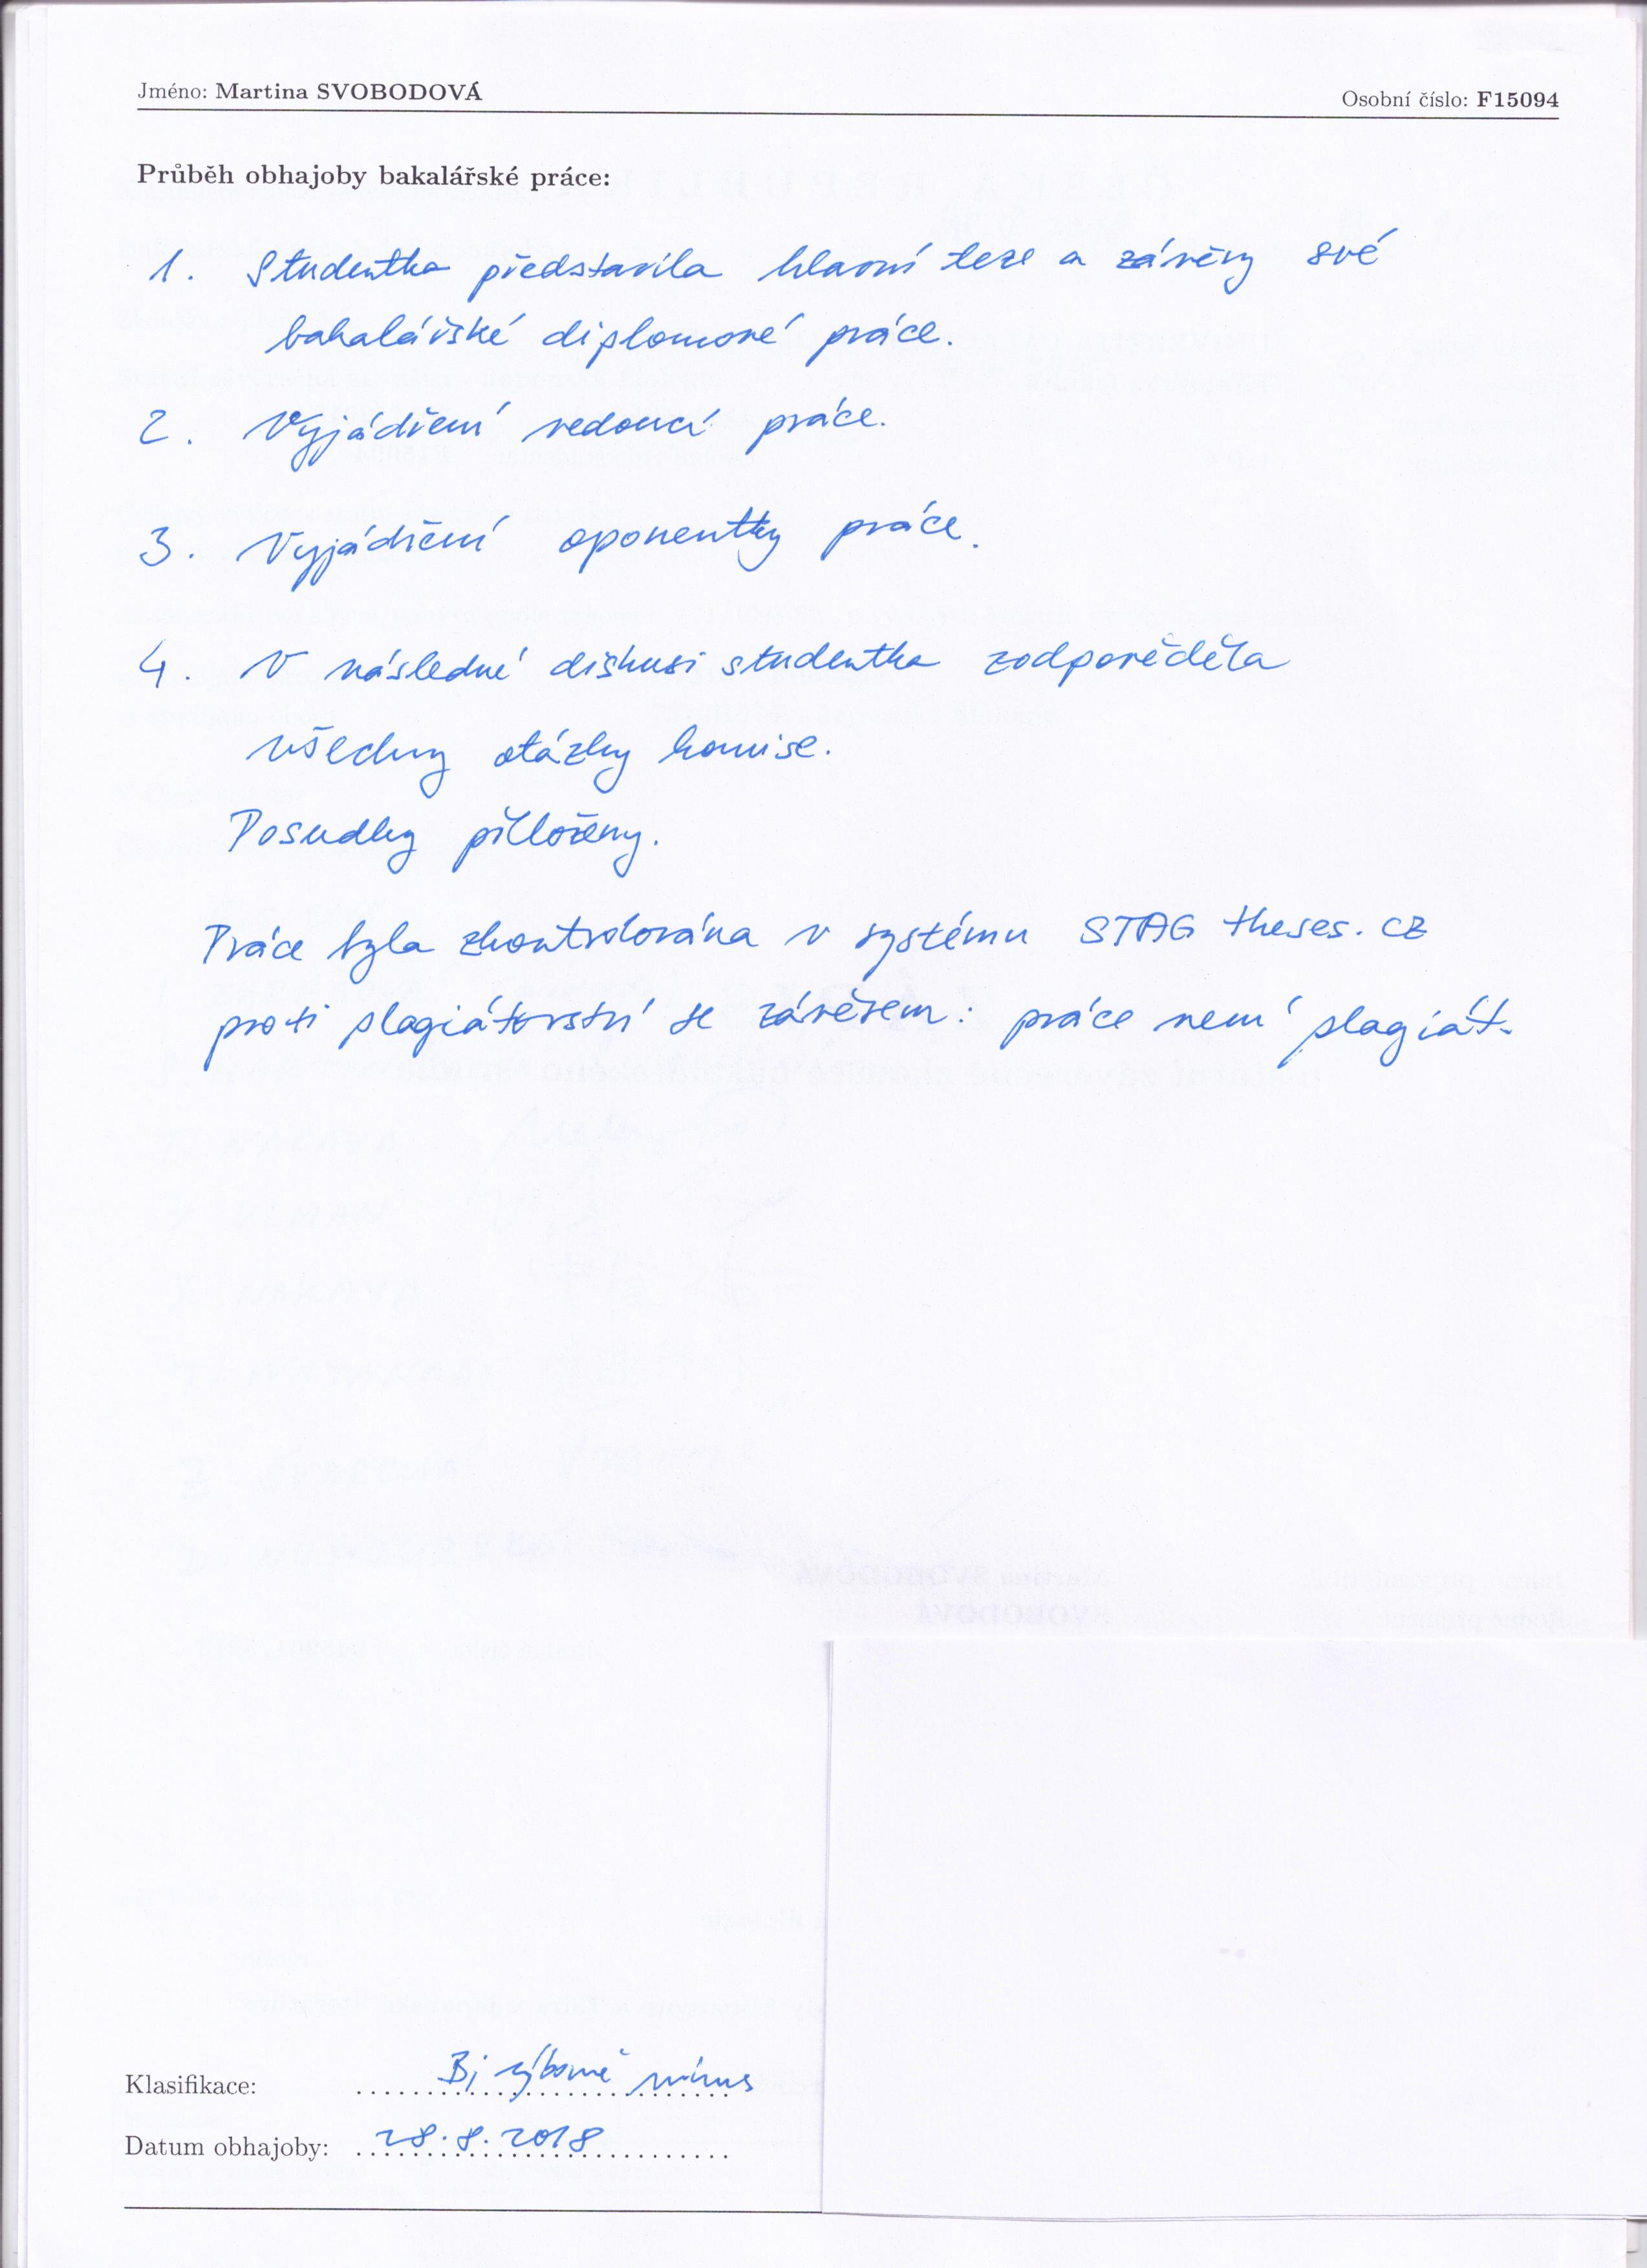 Jméno: Martina SVOBODOVÁ Osobní číslo: F15094
Průběh obhajoby bakalářské práce:
1. Studentka představila hlavní teze a závěry své
bakalářské diplomové práce.
2. Vyjádření vedoucí práce.
3. Vyjádření oponentky práce.
4. V následné diskusi studentka zodpověděla
všechny otázky komise.
Posudky přiloženy.
Práce byla zkontrolována v systému STAG theses.cz
proti plagiátorství se závěrem: práce není plagiát.
Klasifikace: B; výborně mínus
Datum obhajoby: 28.8.2018